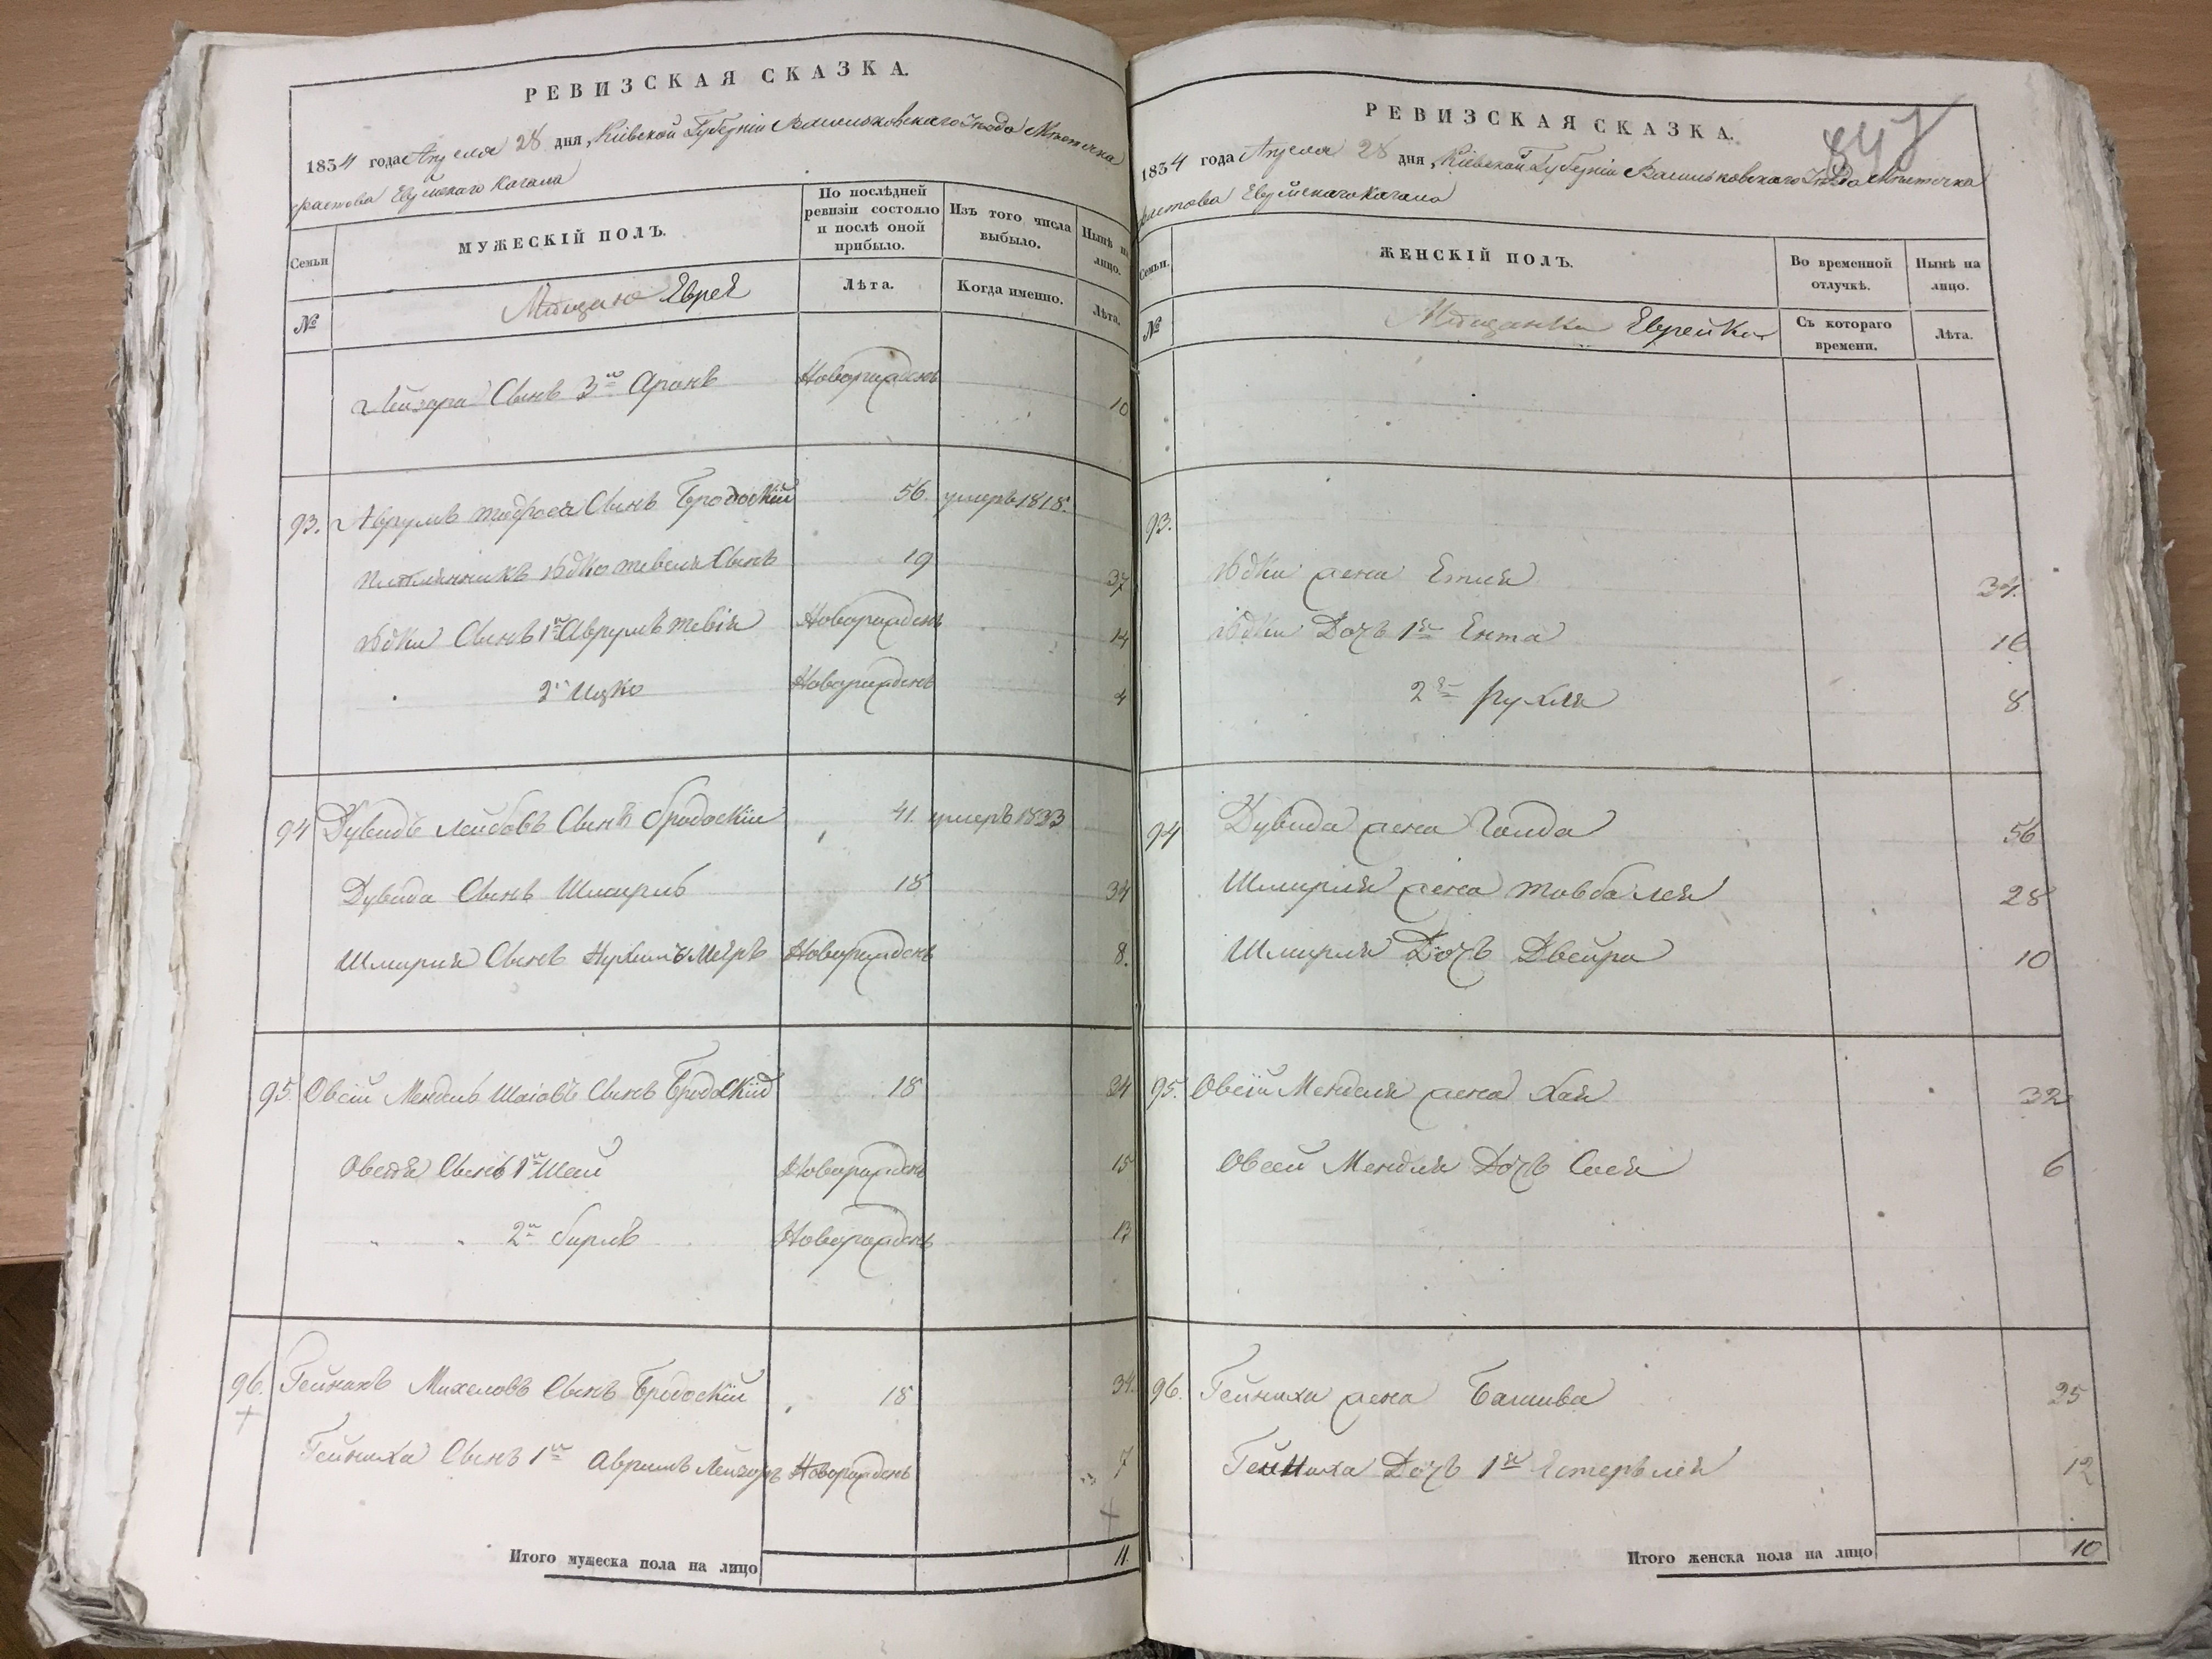 РЕВИЗСКАЯ СКАЗКА.
1834 года Апреля 28 дня, Кіевской Губерніи Васильковскаго Уезда Местечка
Фастова Еврейскаго Кагала
Семьи
МУЖЕСКІЙ ПОЛЪ.
По послѣдней ревизіи состояло и послѣ оной прибыло.
Изъ того числа выбыло.
Нынѣ на лицо.
№
Мещане Евреи
Лѣта.
Когда именно.
Лѣта.
Лейзара Сынъ 3й Аронъ Новорожденъ 10
93. Аврумъ Сынъ Бродскій 56. умеръ 1818.
Племянникъ Юдко Тевеля Сынъ 19 37
Юдки Сынъ 1й Аврумъ Тевія Новорожденъ 14
2й Ицко Новорожденъ 4
94 Дувидъ Лейбовъ Сынъ Бродскій 41. умеръ 1833
Дувида Сынъ Шмириь 18 34
Шмирия Сынъ Нухимъ Меиръ Новорожденъ 8.
95. Овсій Мендель Шаіовъ Сынъ Бродскій 18 34
Овсея Сынъ 1й Шай Новорожденъ 15
" " 2й Бирлъ Новорожденъ 13
96. Гейнихъ Михеловъ Сынъ Бродскій 18 34.
Гейниха Сынъ 1й Аврумъ Лейзоръ Новорожденъ 7
Итого мужеска пола на лицо 11.
РЕВИЗСКАЯ СКАЗКА.
1834 года Апреля 28 дня, Кіевской Губерніи Васильковскаго Уезда Местечка
Фастова Еврейскаго Кагала
Семьи.
ЖЕНСКІЙ ПОЛЪ.
Во временной отлучкѣ.
Нынѣ на лицо.
№
Мещанки Еврейки
Съ котораго времени.
Лѣта.
93.
Юдки жена Етля 34.
Юдки Дочь 1я Ента 16
2я Рухля 8
94 Дувида жена Голда 56
Шмирия жена Товба Лея 28
Шмирия Дочь Двейра 10
95. Овсій Менделя жена Хая 32
Овсей Менделя Дочь Сося 6
96. Гейниха жена Башива 25
Гейниха Дочь 1я Естеръ Лея 12
Итого женска пола на лицо 10